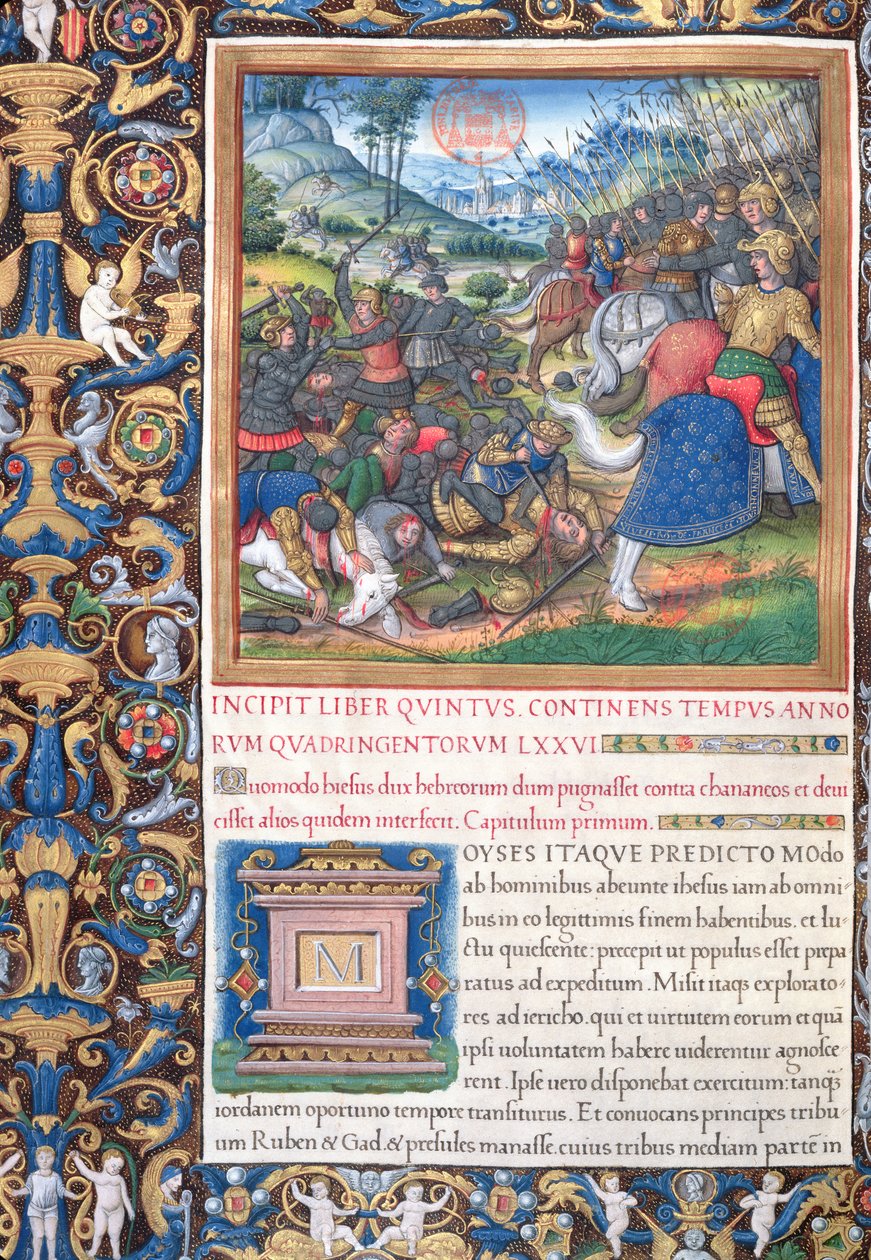 INCIPIT LIBER QVINTVS. CONTINENS TEMPVS ANNO
RVM QVADRINGENTORVM LXXVI.
Quomodo hiesus dux hebreorum dum pugnasset contra chananeos et deui
cisset alios quidem interfecit. Capitulum primum.
M
OYSES ITAQVE PREDICTO MOdo
ab hominibus abeunte ihesus iam ab omni-
bus in eo legittimis finem habentibus. et lu-
ctu quiescente: precepit ut populus esset prepa
ratus ad expeditum. Misit itaqȝ explorato-
res ad iericho. qui et uirtutem eorum et quã
ipsi uoluntatem habere uiderentur agnosce-
rent. Ipse uero disponebat exercitum: tanqȝ
iordanem oportuno tempore transiturus. Et conuocans principes tribu-
um Ruben & Gad. & presules manasse. cuius tribus mediam partẽ in